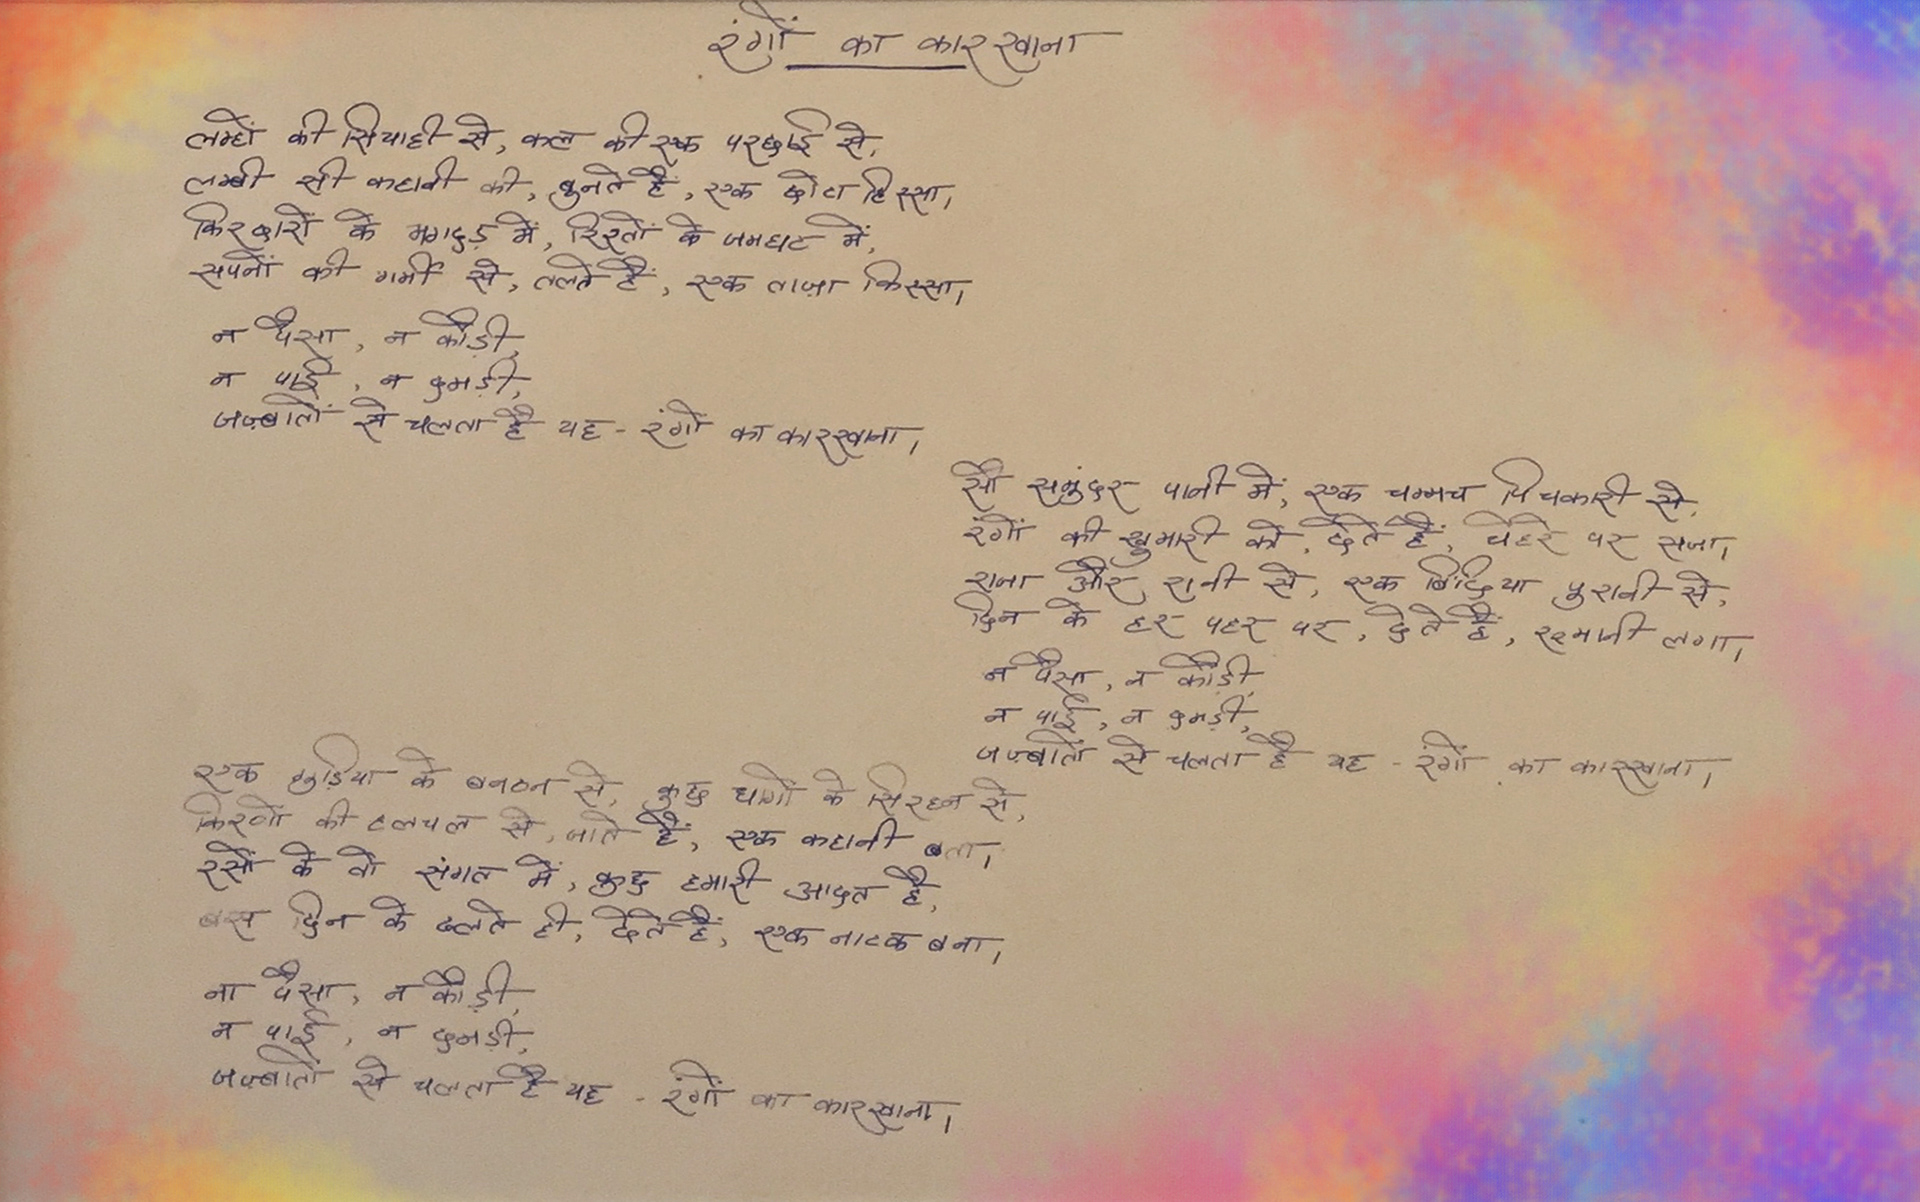 रंगों का कारखाना
लम्हों की सियाही से, कल की एक परछाई से,
लम्बी सी कहानी की, बुनते हैं, एक छोटा हिस्सा,
किरदारों के भगदड़ में, रिश्तों के जमघट में,
सपनों की गर्मी से, तलते हैं, एक ताज़ा किस्सा,
न पैसा, न कौड़ी,
न पाई, न दमड़ी,
जज़्बातों से चलता है यह - रंगों का कारखाना,
सौ समुंदर पानी में, एक चम्मच पिचकारी से,
रंगों की खुमारी को, देते हैं, चेहरे पर सजा,
राजा और रानी से, एक बिंदिया पुरानी से,
दिन के हर पहर पर, देते हैं, रूमानी लगा,
न पैसा, न कौड़ी,
न पाई, न दमड़ी,
जज़्बातों से चलता है यह - रंगों का कारखाना,
एक गुड़िया के बनठन से, कुछ धागों के सिरहन से,
किरणों की हलचल से, जाते हैं, एक कहानी बता,
रसों के वो संगत में, कुछ हमारी आदत है,
बस दिन के ढलते ही, देते हैं, एक नाटक बना,
ना पैसा, न कौड़ी,
न पाई, न दमड़ी,
जज़्बातों से चलता है यह - रंगों का कारखाना,